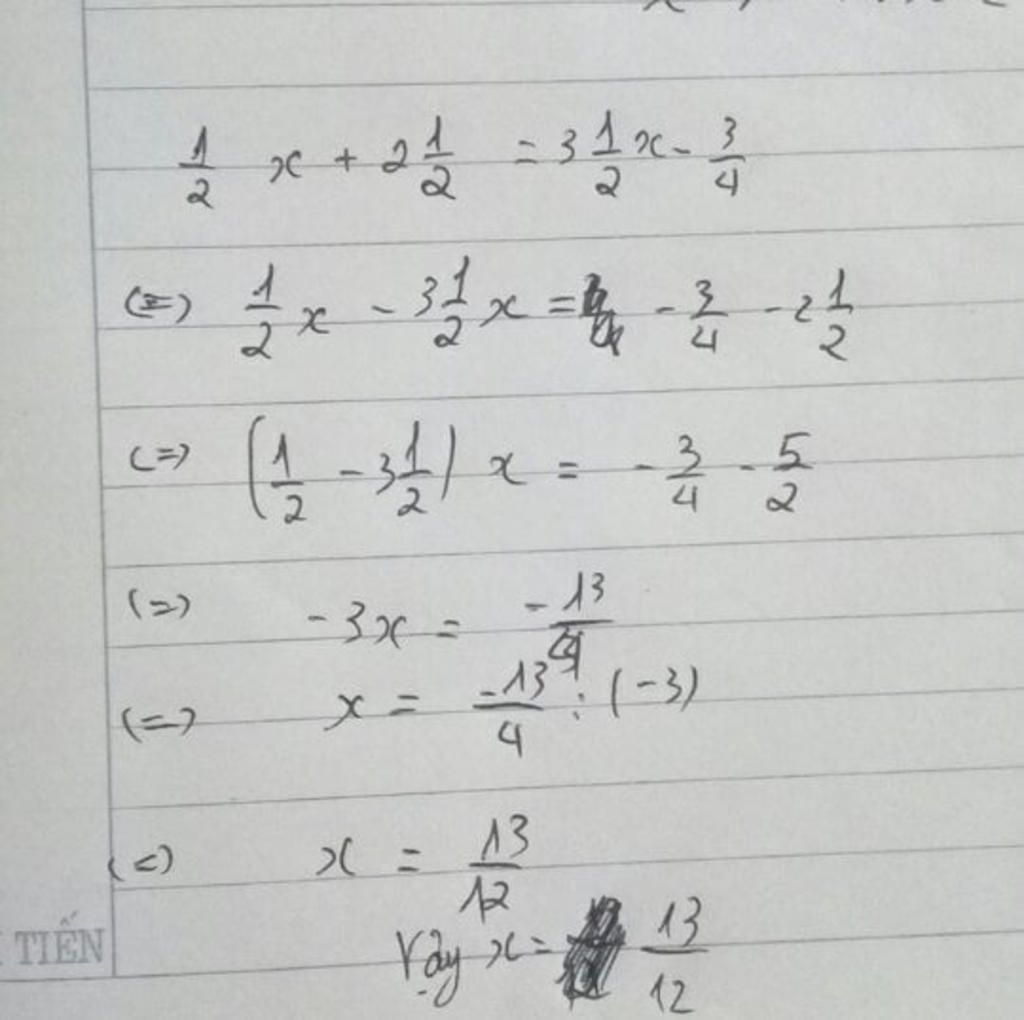 1/2 x + 2 1/2 = 3 1/2 x - 3/4
(=) 1/2 x - 3 1/2 x = - 3/4 - 2 1/2
(=) (1/2 - 3 1/2) x = - 3/4 - 5/2
(=) -3x = -13/4
(=) x = -13/4 : (-3)
(=) x = 13/12
Vậy x = 13/12
TIẾN